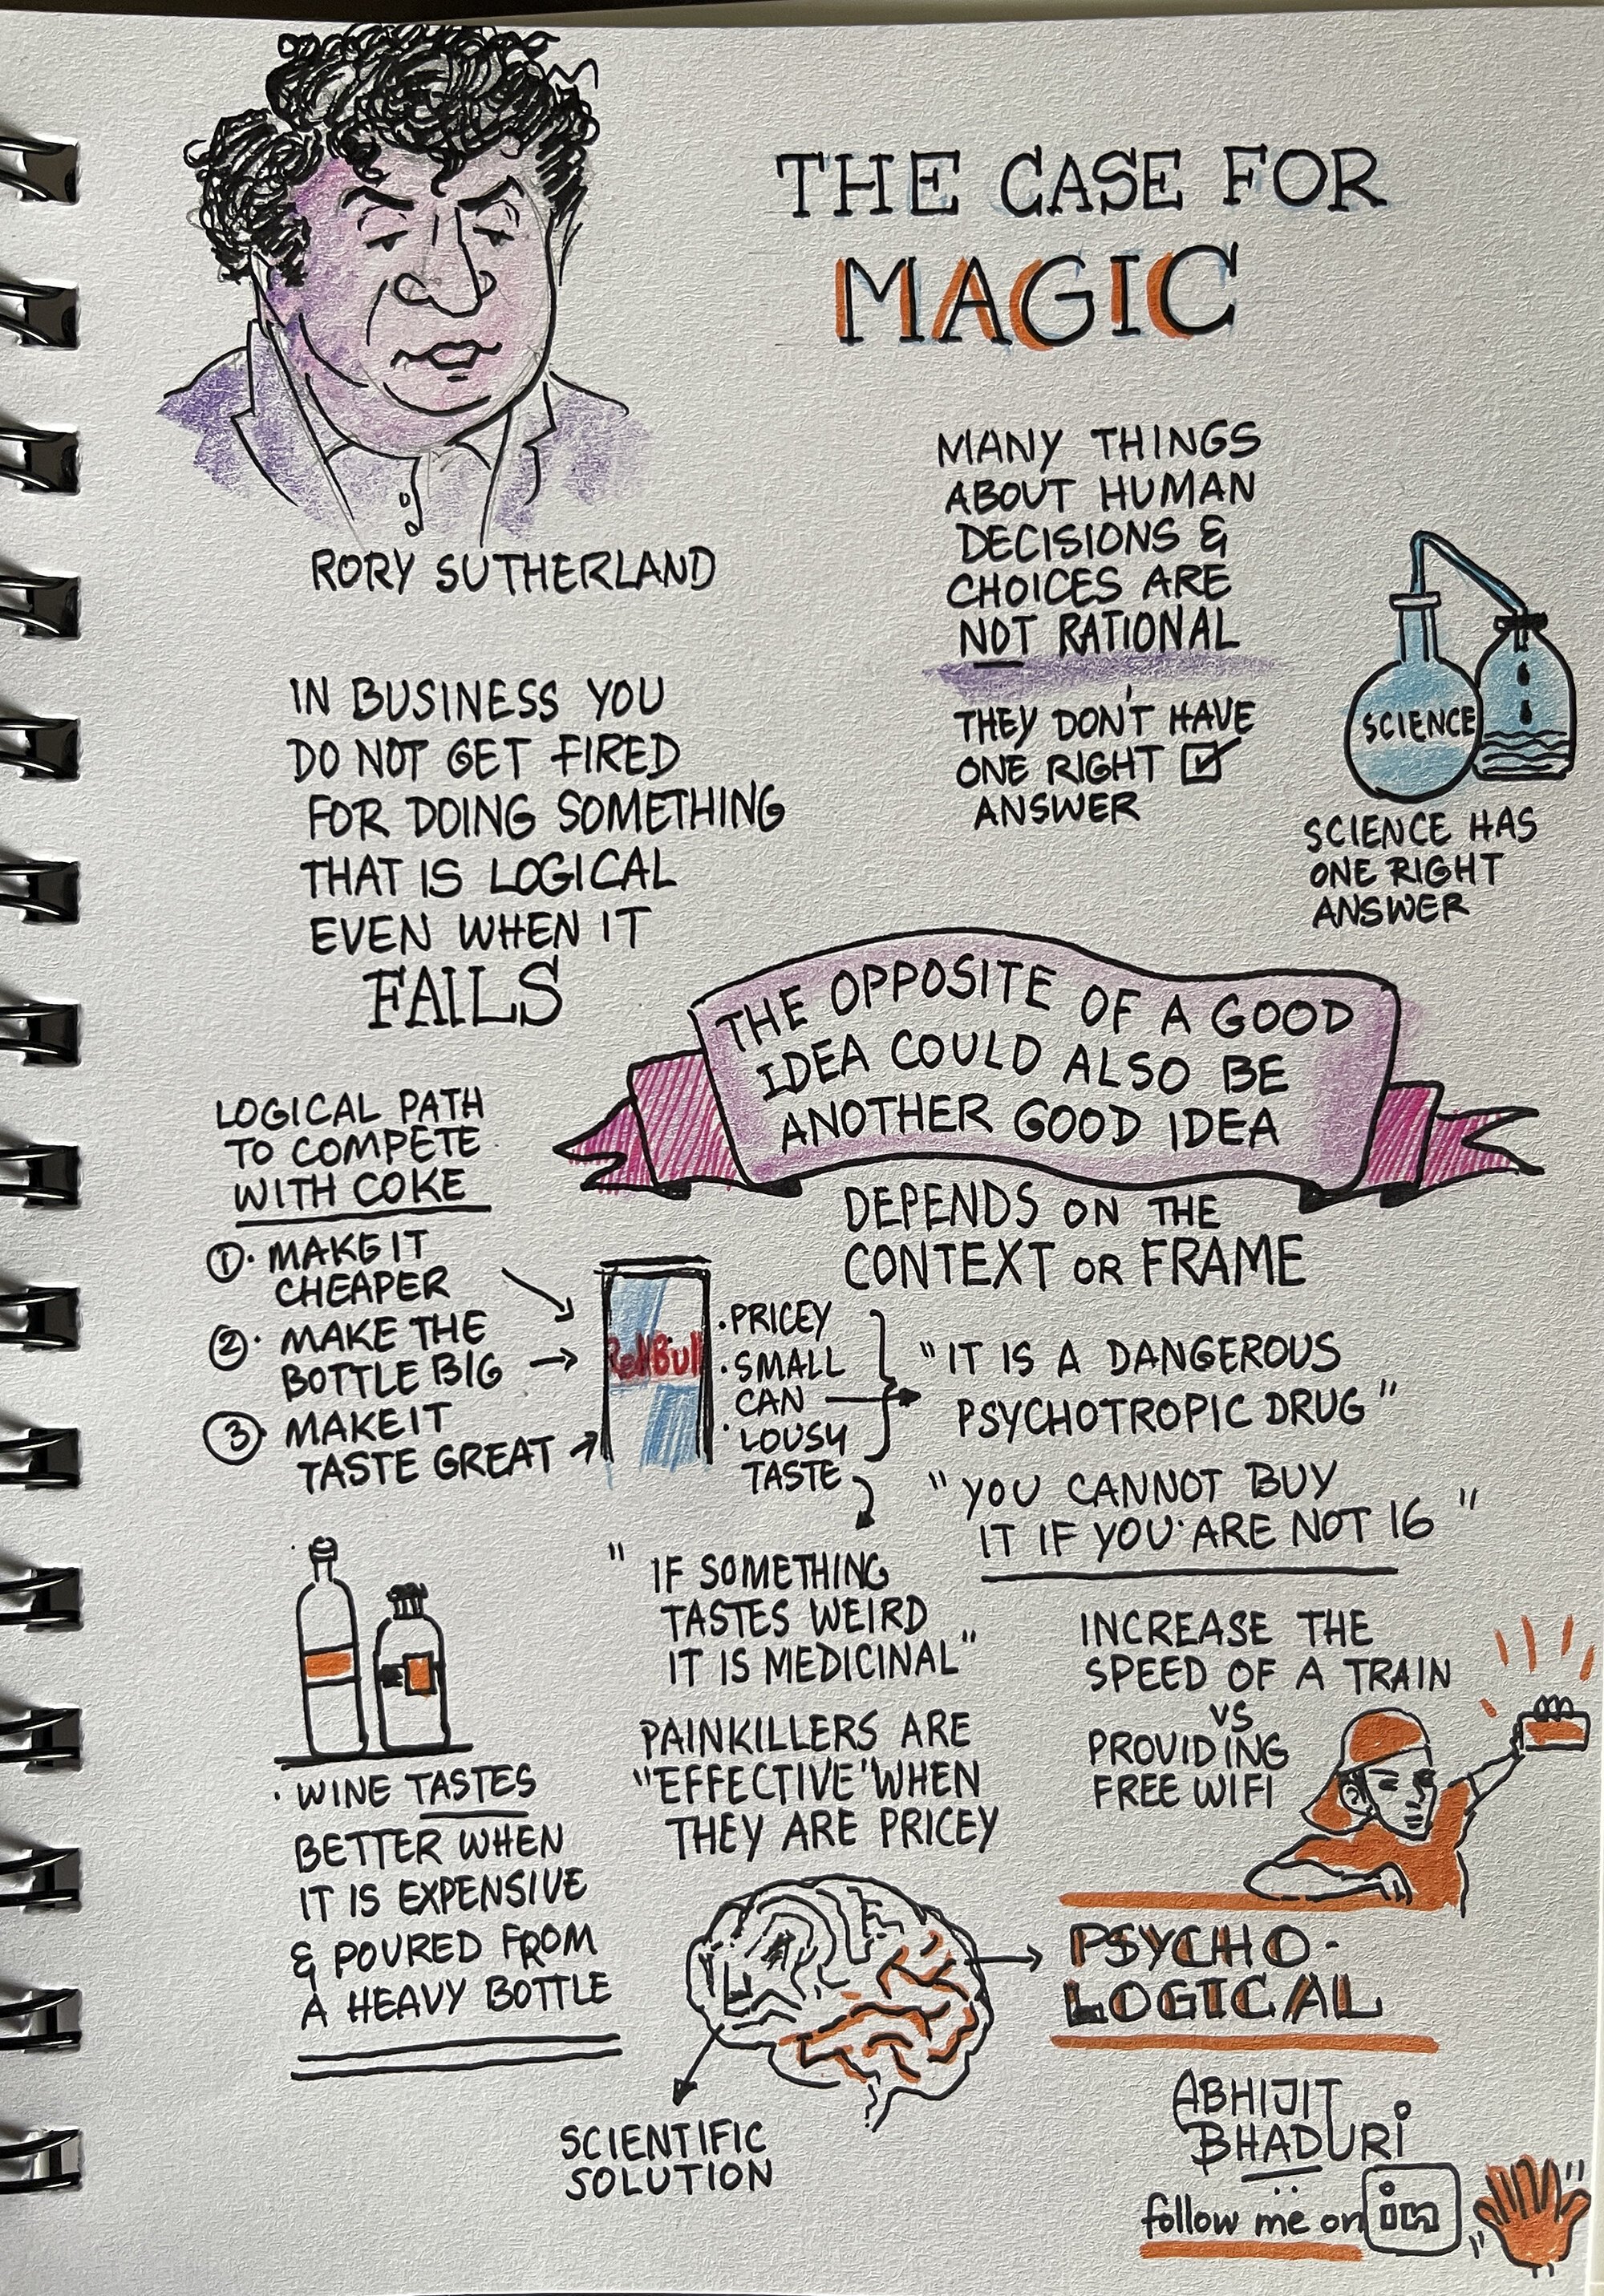 THE CASE FOR
MAGIC
RORY SUTHERLAND
MANY THINGS
ABOUT HUMAN
DECISIONS &
CHOICES ARE
NOT RATIONAL
THEY DON'T HAVE
ONE RIGHT
ANSWER
SCIENCE
SCIENCE HAS
ONE RIGHT
ANSWER
IN BUSINESS YOU
DO NOT GET FIRED
FOR DOING SOMETHING
THAT IS LOGICAL
EVEN WHEN IT
FAILS
THE OPPOSITE OF A GOOD
IDEA COULD ALSO BE
ANOTHER GOOD IDEA
DEPENDS ON THE
CONTEXT OR FRAME
LOGICAL PATH
TO COMPETE
WITH COKE
1. MAKE IT
CHEAPER
2. MAKE THE
BOTTLE BIG
3. MAKE IT
TASTE GREAT
RedBull
• PRICEY
• SMALL
CAN
• LOUSY
TASTE
"IT IS A DANGEROUS
PSYCHOTROPIC DRUG"
"YOU CANNOT BUY
IT IF YOU ARE NOT 16"
"IF SOMETHING
TASTES WEIRD
IT IS MEDICINAL"
PAINKILLERS ARE
"EFFECTIVE" WHEN
THEY ARE PRICEY
INCREASE THE
SPEED OF A TRAIN
VS
PROVIDING
FREE WIFI
• WINE TASTES
BETTER WHEN
IT IS EXPENSIVE
& POURED FROM
A HEAVY BOTTLE
PSYCHO-
LOGICAL
SCIENTIFIC
SOLUTION
ABHIJIT
BHADURI
follow me on in